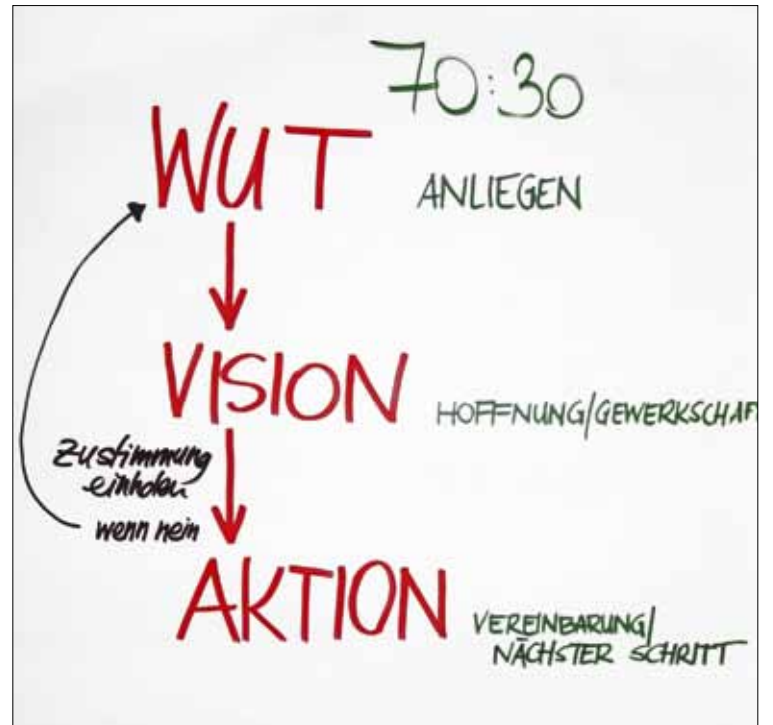 70:30
WUT
ANLIEGEN
VISION
HOFFNUNG/GEWERKSCHAF
Zustimmung
einholen
wenn nein
AKTION
VEREINBARUNG/
NÄCHSTER SCHRITT